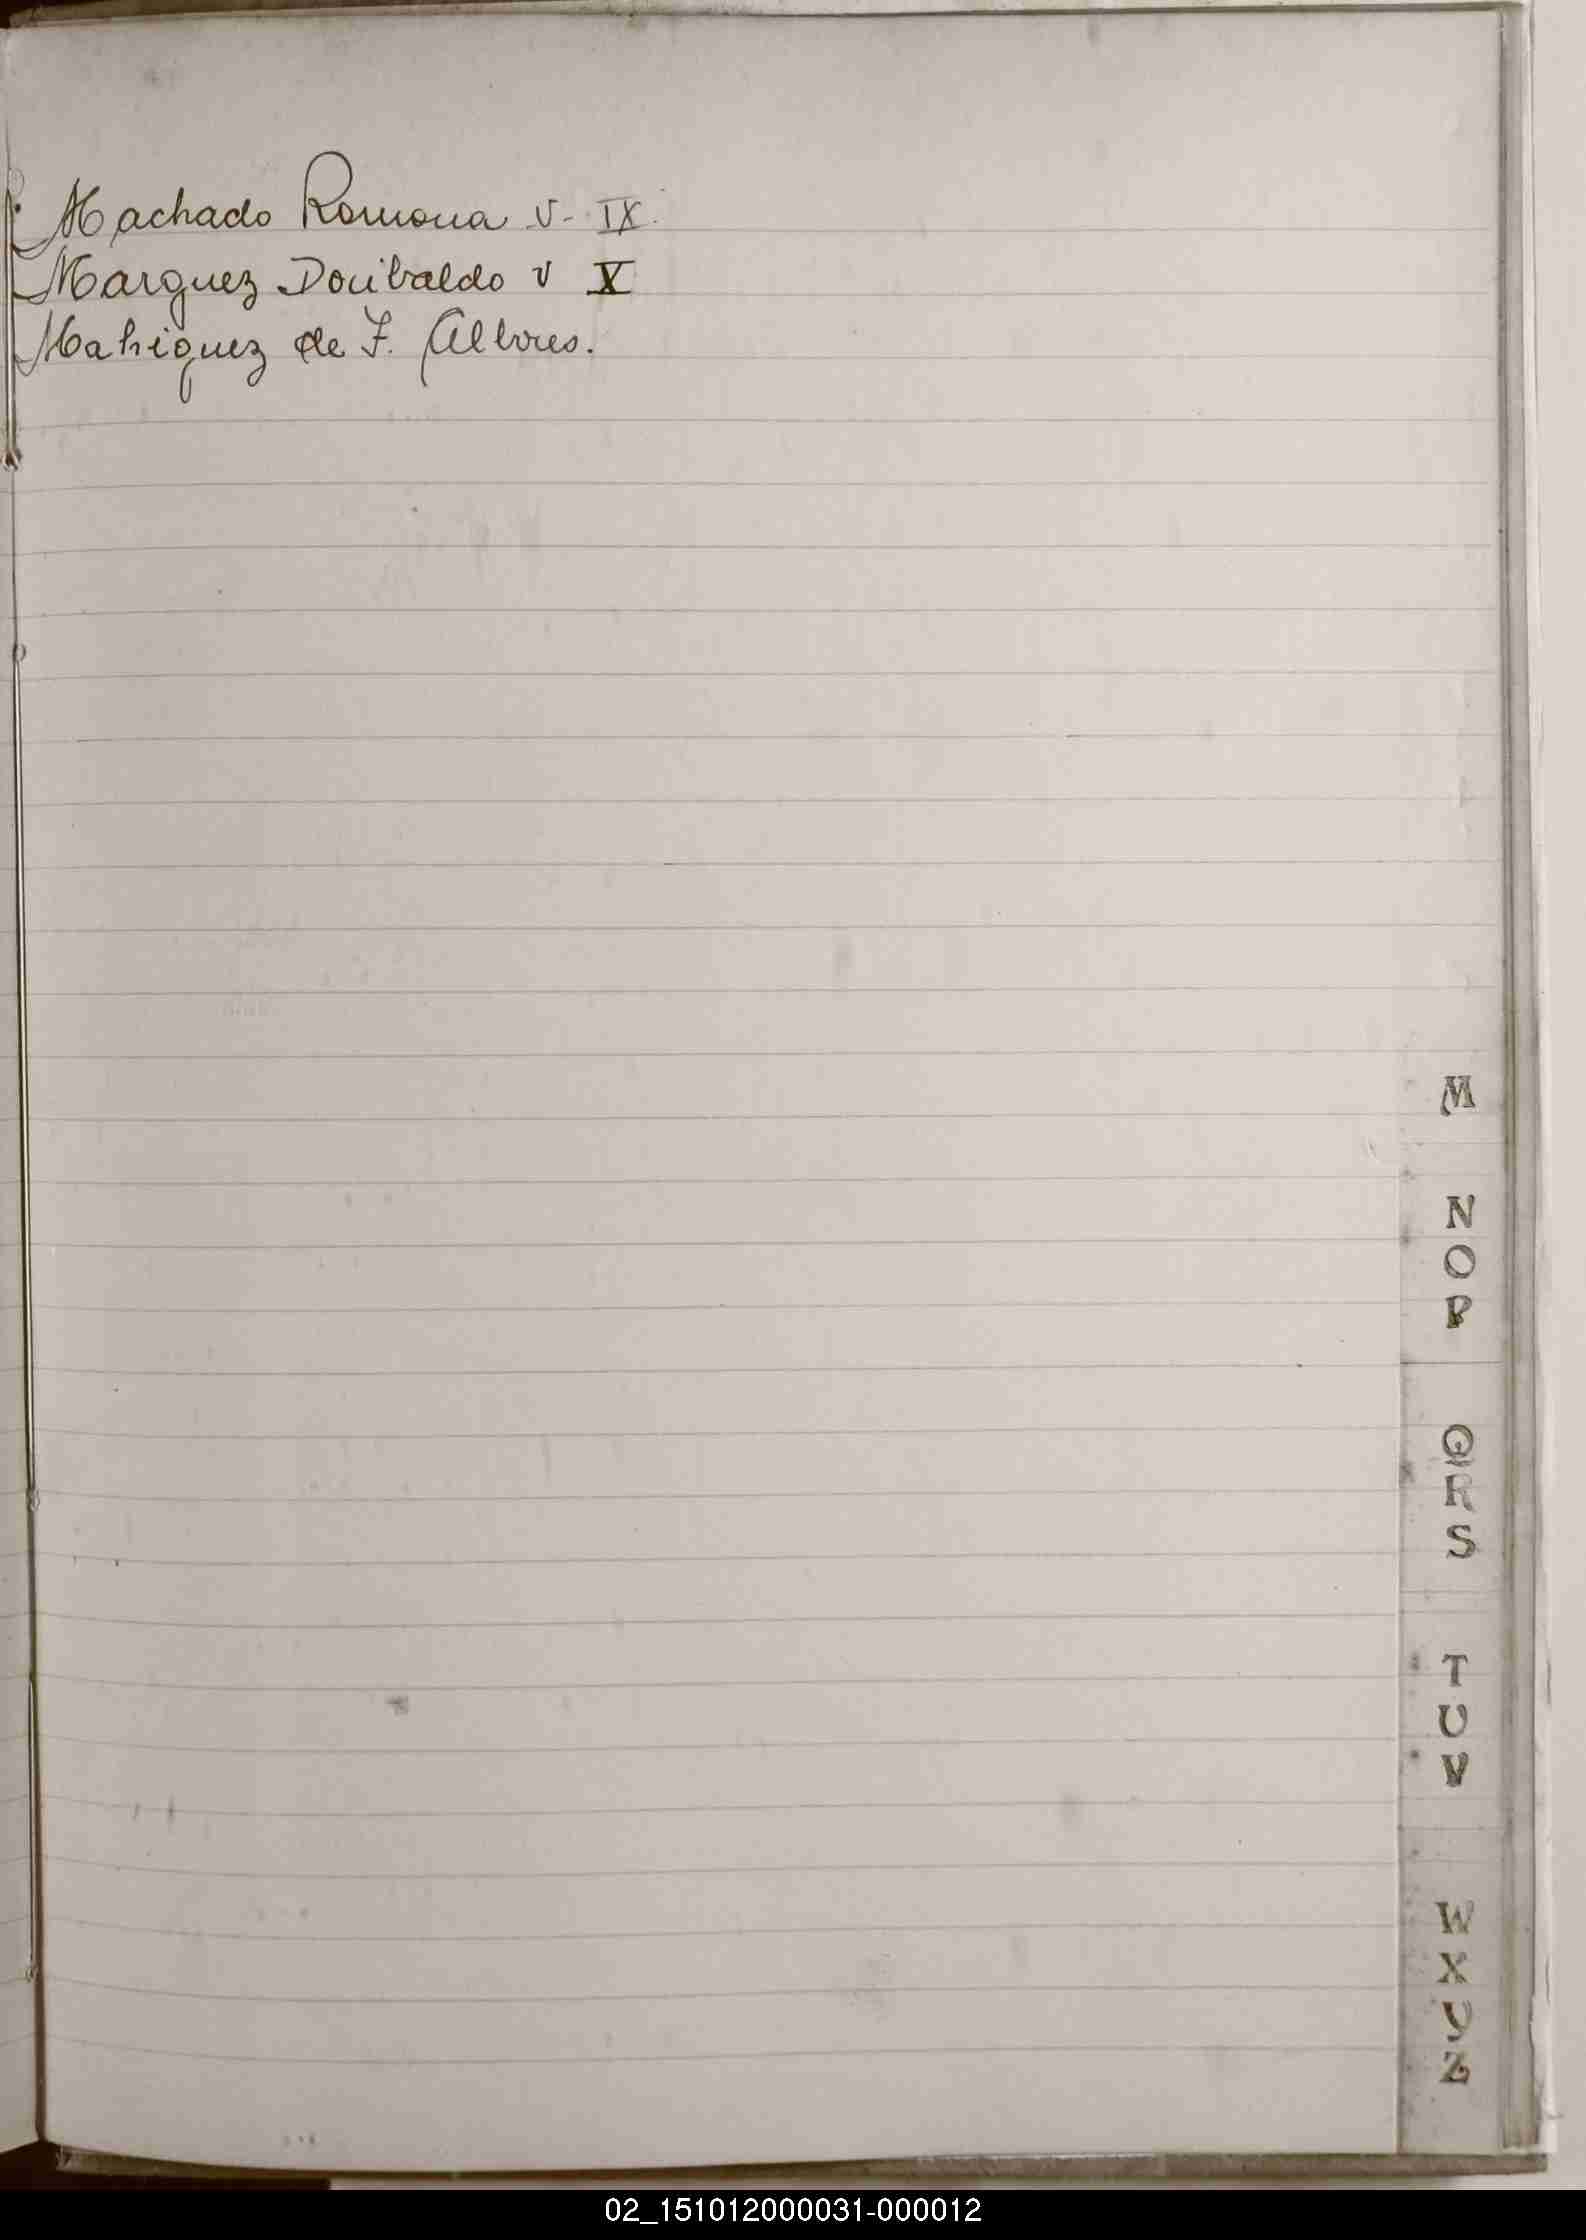 Machado Ramona v- IX.
Marquez Doribaldo v X
Mahiquez de F.
M
N
O
P
Q
R
S
T
U
V
W
X
Y
Z
02_151012000031-000012